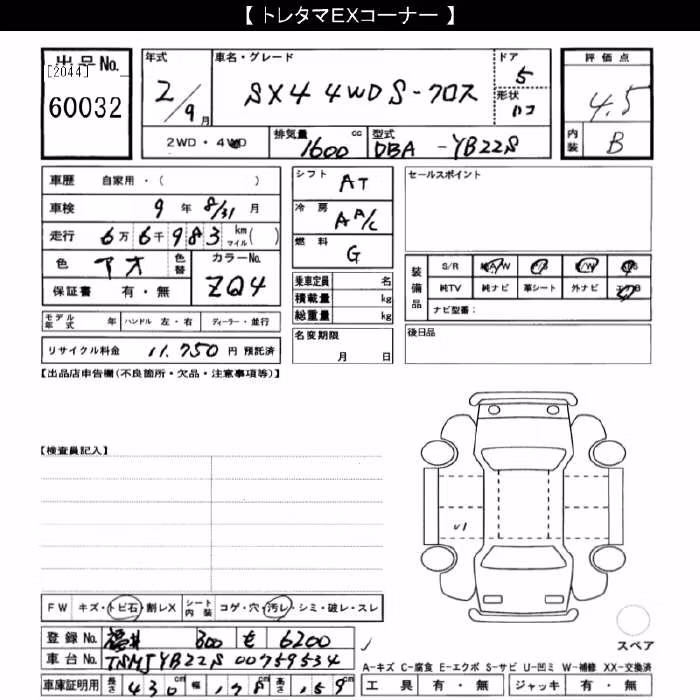 【 トレタマEXコーナー 】
出品No.
[2044]
60032
年式
2/9月
車名・グレード
SX4 4WD S-クロス
ドア
5
形状
ハコ
評価点
4.5
内装
B
2WD・4WD
排気量
1600 cc
型式
DBA -YB22S
車歴 自家用・( )
車検 9年 8/31月
走行 6万6千983 km マイル( )
色 アオ
色替
カラーNo.
ZQ4
保証書 有・無
モデル年式 年 ハンドル 左・右 ディーラー・並行
リサイクル料金 11,750 円 預託済
シフト
AT
冷房
AA/C
燃料
G
乗車定員 名
積載量 kg
総重量 kg
名変期限
月 日
セールスポイント
装備品
S/R 純A/W P/S P/W ABS
純TV 純ナビ 革シート 外ナビ エアB
ナビ型番:
後日品
【出品店申告欄(不良箇所・欠品・注意事項等)】
【検査員記入】
U1
FW キズ・トビ石・割レX
シート内装 コゲ・穴・汚レ・シミ・破レ・スレ
登録No. 福井 300 も 6200
車台No. TSMJYB22S 00759534
車庫証明用 長さ 430cm 幅 178cm 高さ 159cm
スペア
A-キズ C-腐食 E-エクボ S-サビ U-凹ミ W-補修 XX-交換済
工具 有・無 ジャッキ 有・無